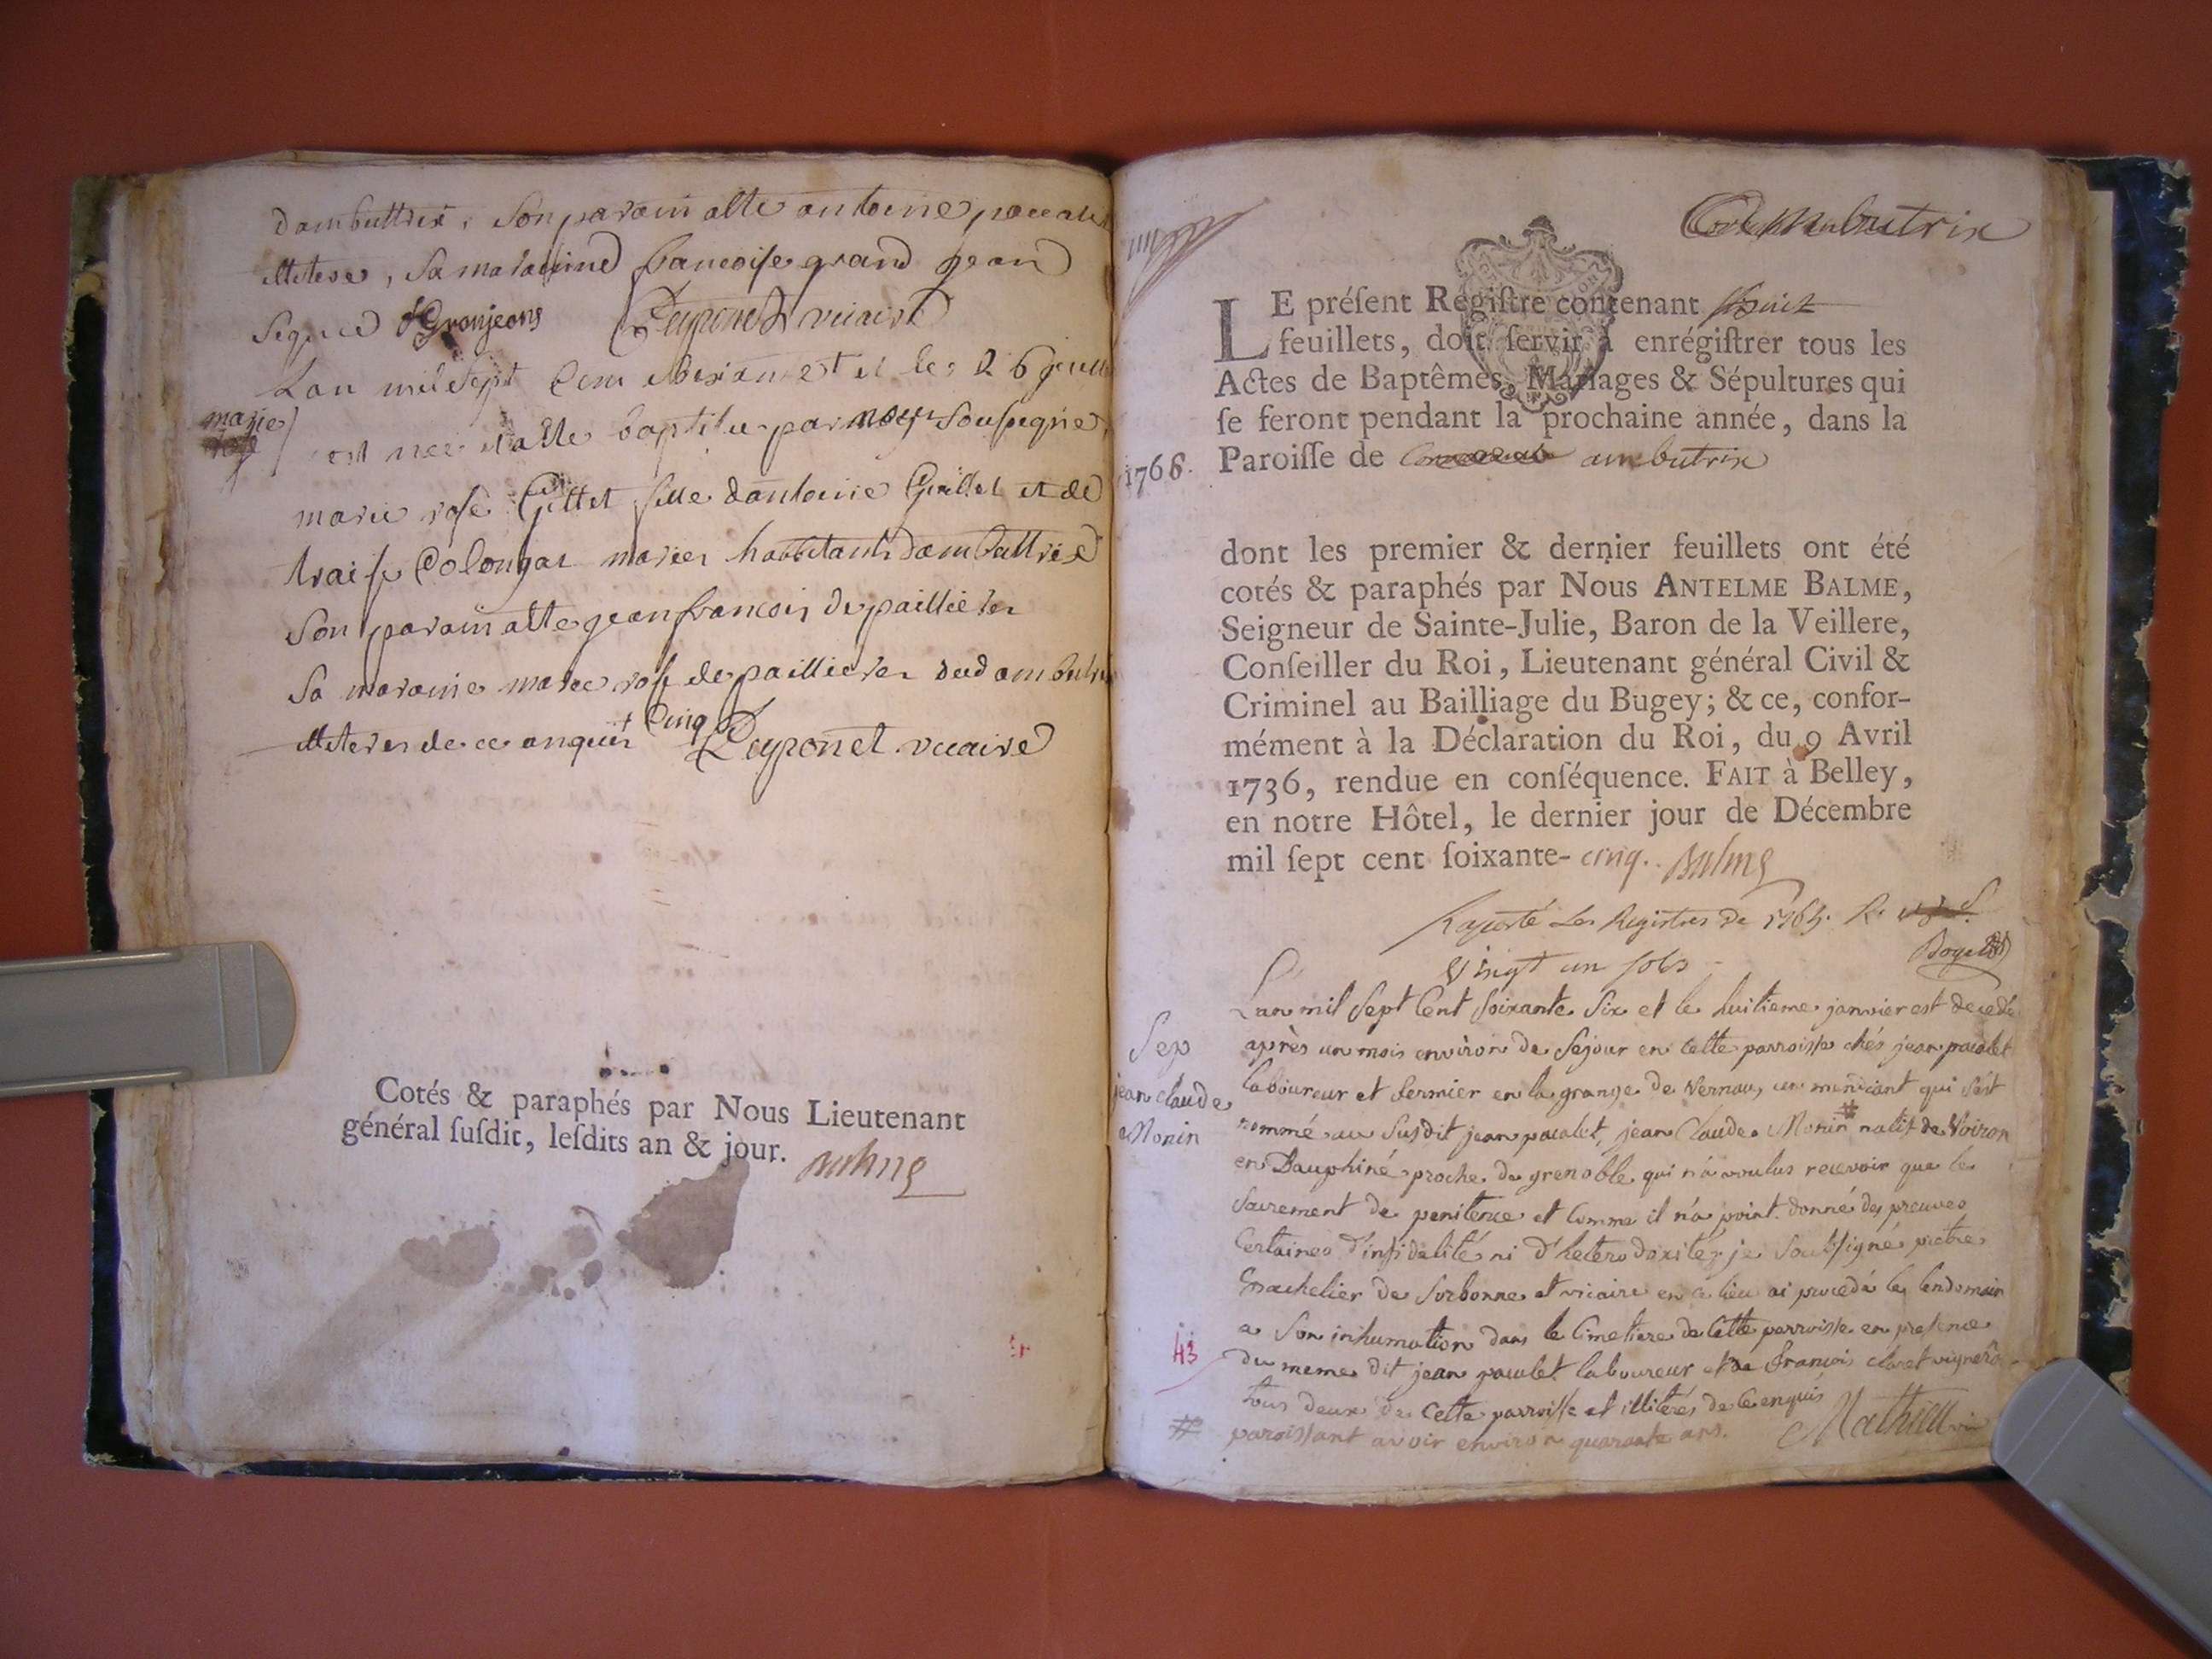 dambuttrix, Son parain atte antoine
illiterer, Sa maraine francoise grand jean
Signé fGronjeons Peyronet vicaire
Lan mil sept Cens soixante et le 26
marie
est nee et atte baptisee par moy Sousigné
marie rose Gittet fille dantoine Grillet et de
Colongar mariés habbitants dambuttrix
Son parain atte jean francois de paillieter
Sa maraine marie rose de paillieter
illiterer de ce anquis Peyronet vicaire
Cinq
Cotés & paraphés par Nous Lieutenant
général ſuſdit, leſdits an & jour. Balme
ambutrix
LE préſent Régiſtre contenant huit
feuillets, doit ſervir à enrégiſtrer tous les
Actes de Baptêmes, Mariages & Sépultures qui
ſe feront pendant la prochaine année, dans la
1766. Paroiſſe de ambutrix
dont les premier & dernier feuillets ont été
cotés & paraphés par Nous ANTELME BALME,
Seigneur de Sainte-Julie, Baron de la Veillere,
Conſeiller du Roi, Lieutenant général Civil &
Criminel au Bailliage du Bugey; & ce, confor-
mément à la Déclaration du Roi, du 9 Avril
1736, rendue en conſéquence. FAIT à Belley,
en notre Hôtel, le dernier jour de Décembre
mil ſept cent ſoixante- cinq. Balme
Raporté Les Registres de 1765. R.
Vingt un sols
Lan mil Sept Cent Soixante Six et le huitieme janvier est decedé
Sep après un mois environ de Sejour en cette parroisse chés jean pacalet
jean claude laboureur et fermier en la grange de Vernau, un mendiant qui s'est
Monin nommé au Susdit jean pacalet, jean Claude Monin # natif de Voiron
en Dauphiné proche de grenoble qui n'a voulus recevoir que le
Sacrement de penitence et Comme il n'a point donné des preuves
Certaines d'infidelité ni d'heterodoxité, je Soubsigné prêtre
Bachelier de Sorbonne et vicaire en ce lieu ai procedé le lendemain
a Son inhumation dans le Cimetiere de Cette parroisse en presence
43 du meme dit jean pacalet laboureur et de francois claret vigneron
tous deux de Cette parroisse et illiterés de ce enquis
# paroissant avoir environ quarante ans. Mathieu vic